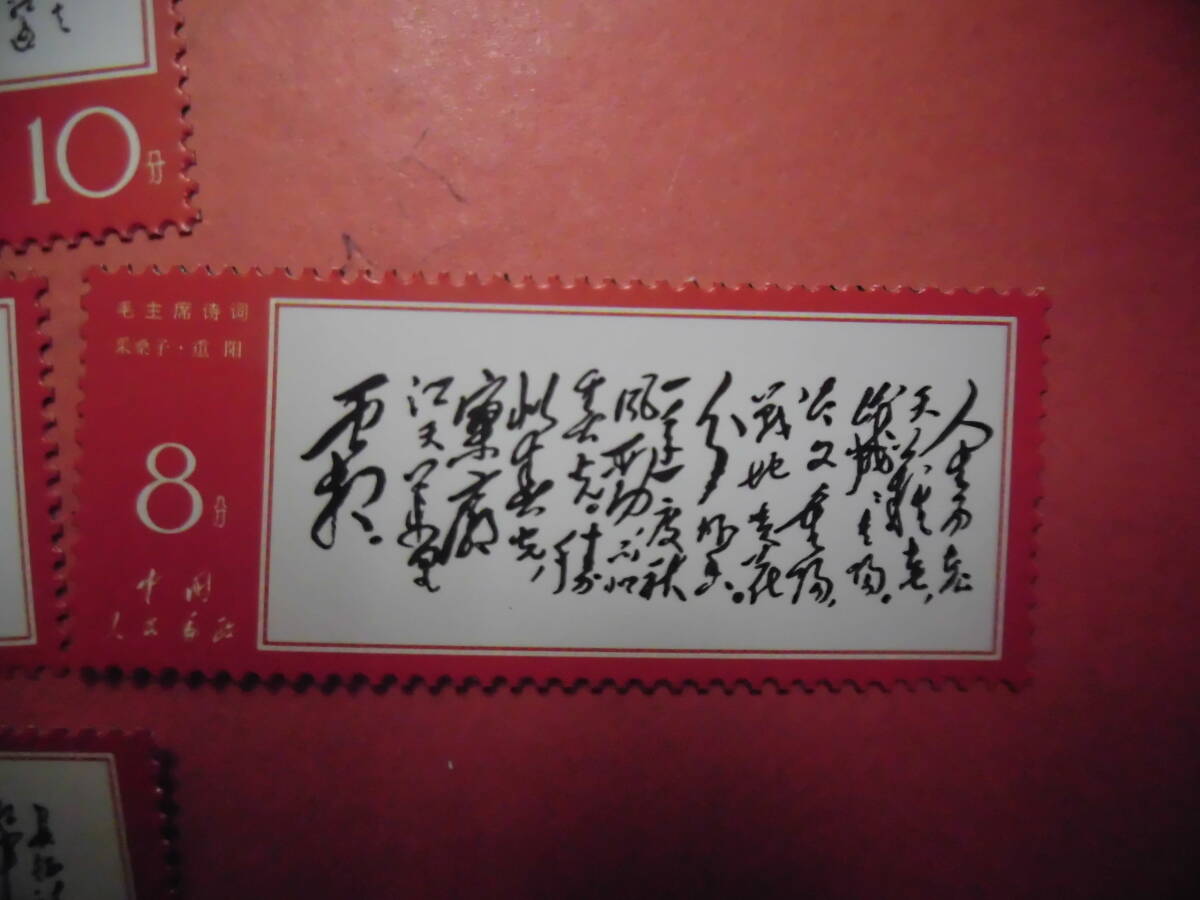 10分
毛主席诗词
采桑子·重阳
8分
中国
人民邮政
人生易老
天難老,
歲歲重陽。
今又重陽,
戰地黄花
分外香。
一年一度秋
風勁,不似
春光。勝
似春光,
寥廓
江天萬里
霜。